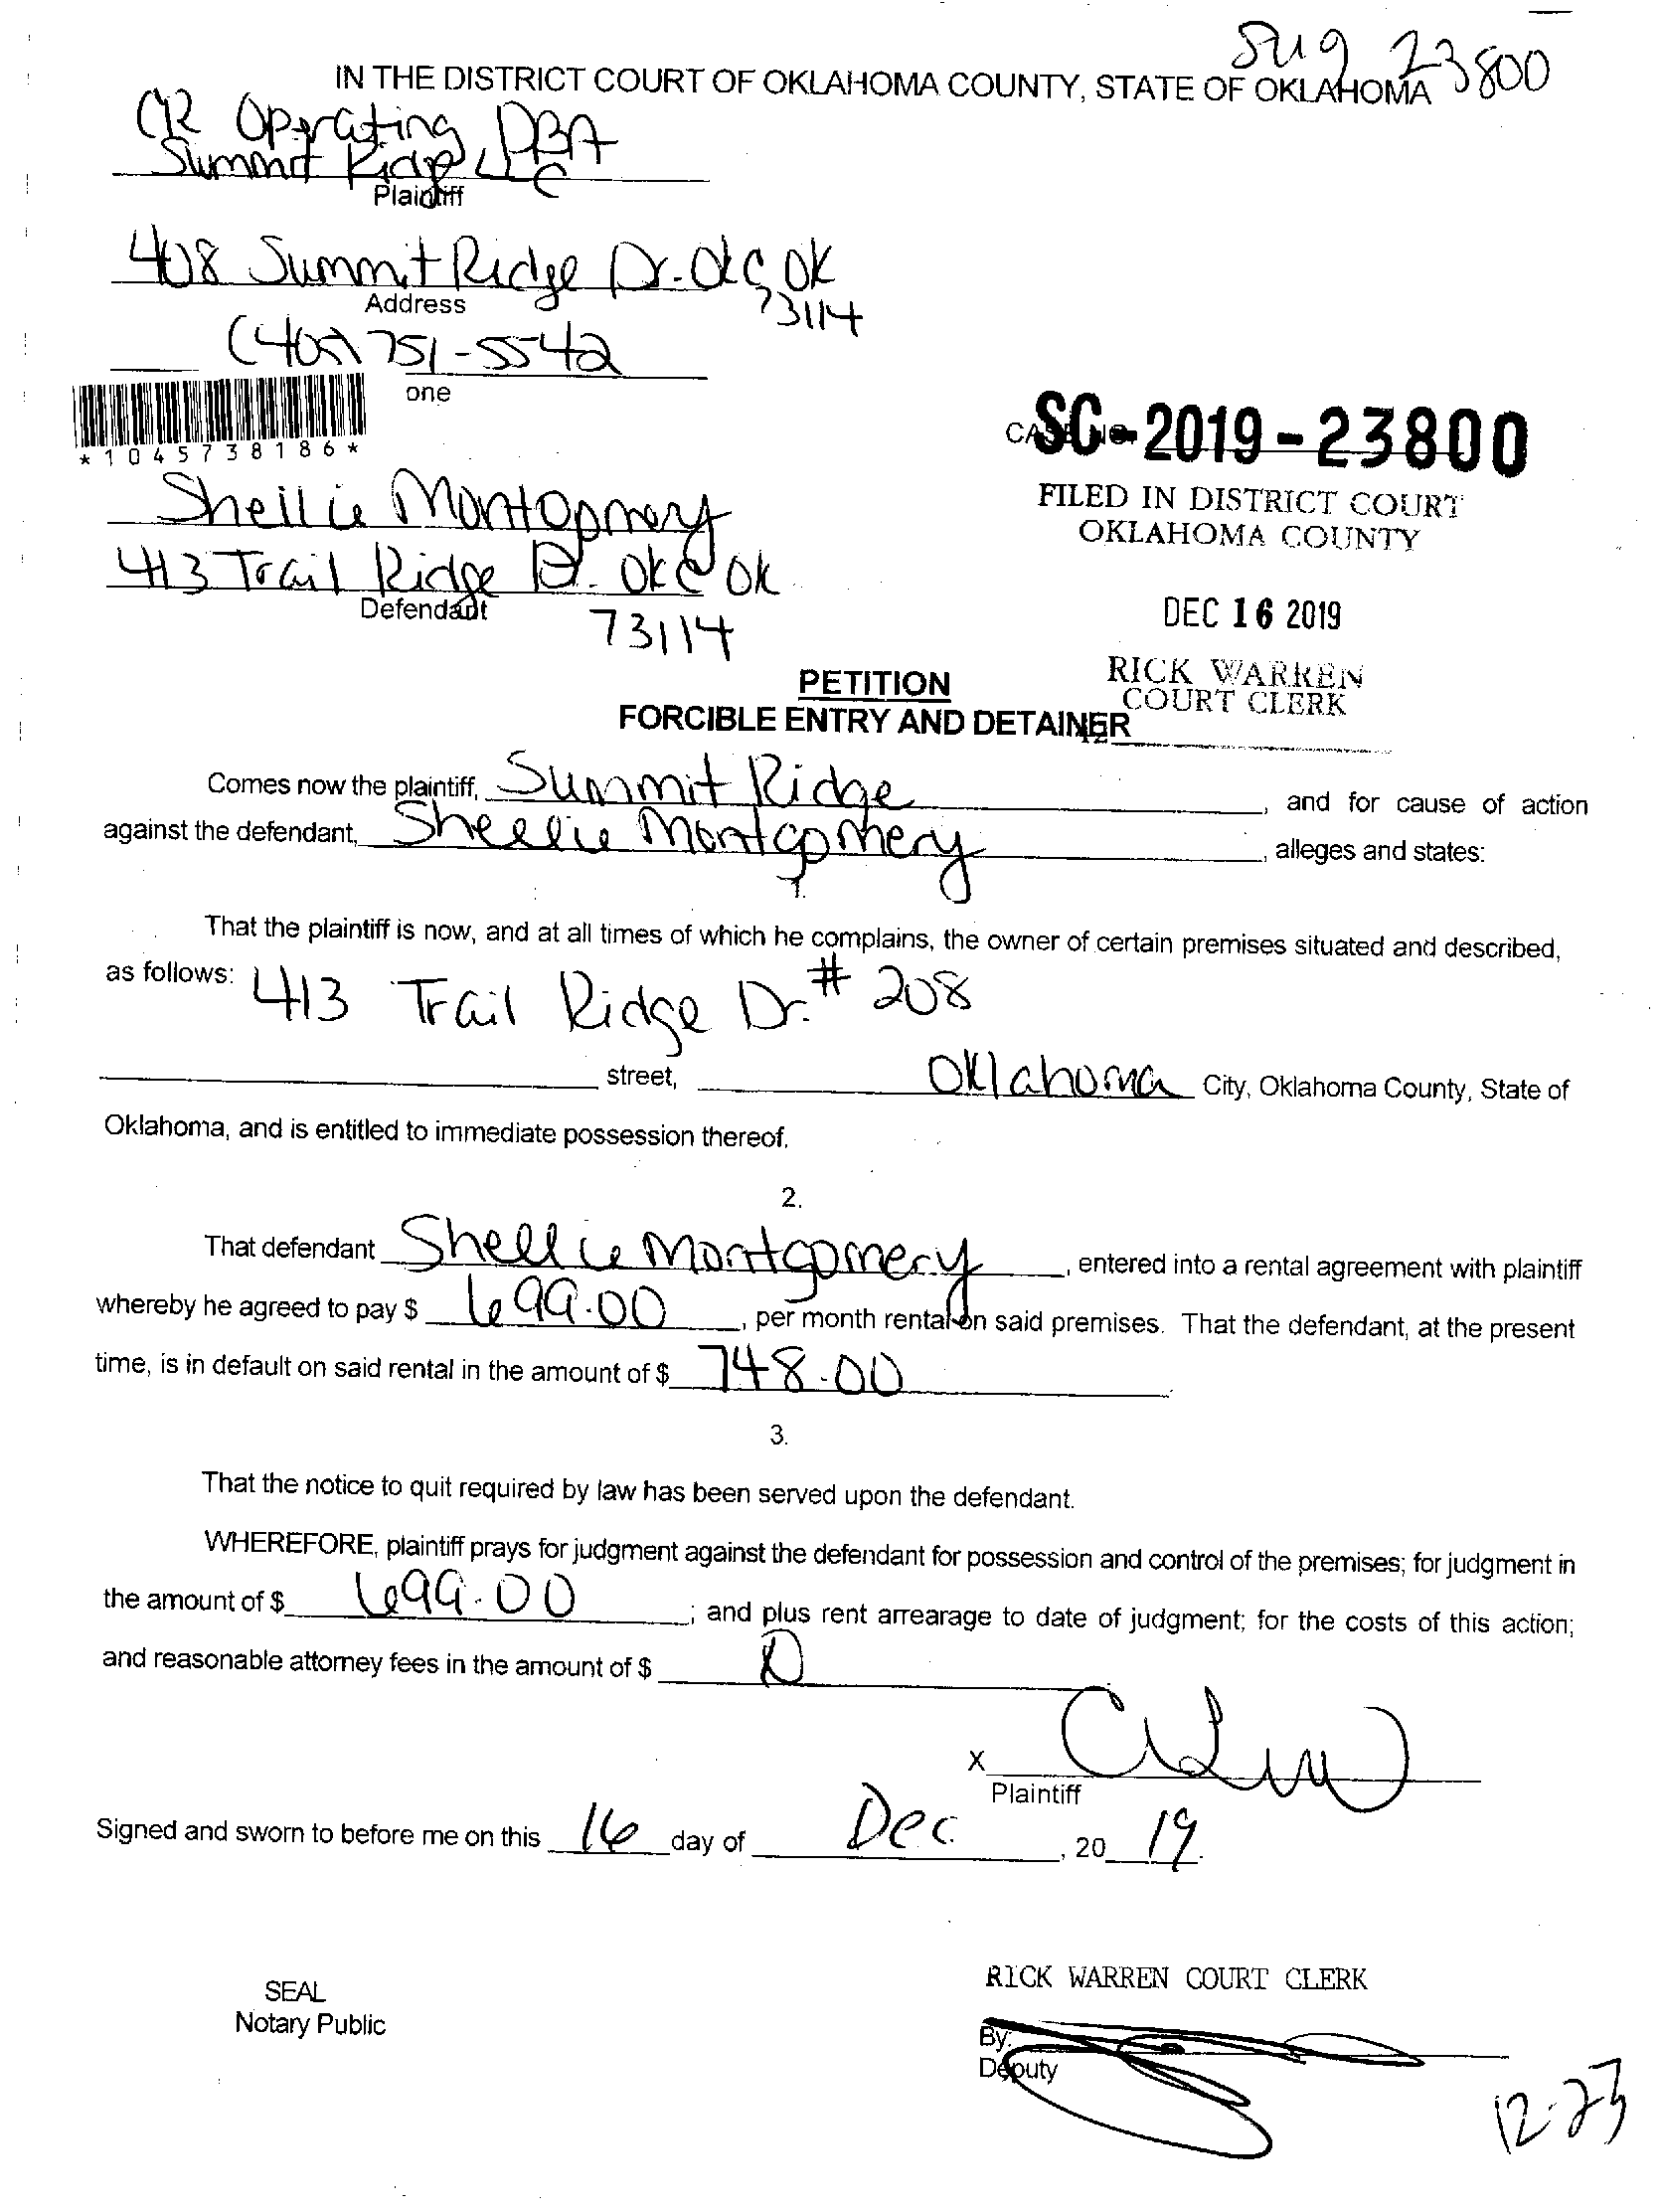 SM19 23800
IN THE DISTRICT COURT OF OKLAHOMA COUNTY, STATE OF OKLAHOMA
CR Operating DBA
Summit Ridge LLC
Plaintiff
408 Summit Ridge Dr. OKC, OK
73114
Address
(405) 751-5542
one
*1045738186*
SC-2019-23800
FILED IN DISTRICT COURT
OKLAHOMA COUNTY
Shellie Montgomery
413 Trail Ridge Dr. OKC OK
Defendant
73114
DEC 16 2019
RICK WARREN
COURT CLERK
PETITION
FORCIBLE ENTRY AND DETAINER
Comes now the plaintiff, Summit Ridge, and for cause of action
against the defendant, Shellie Montgomery, alleges and states:
1.
That the plaintiff is now, and at all times of which he complains, the owner of certain premises situated and described,
as follows: 413 Trail Ridge Dr. # 208
street, Oklahoma City, Oklahoma County, State of
Oklahoma, and is entitled to immediate possession thereof.
2.
That defendant Shellie Montgomery, entered into a rental agreement with plaintiff
whereby he agreed to pay $ 699.00, per month rental on said premises. That the defendant, at the present
time, is in default on said rental in the amount of $ 748.00
3.
That the notice to quit required by law has been served upon the defendant.
WHEREFORE, plaintiff prays for judgment against the defendant for possession and control of the premises; for judgment in
the amount of $ 699.00; and plus rent arrearage to date of judgment; for the costs of this action;
and reasonable attorney fees in the amount of $ 0
X
Plaintiff
Signed and sworn to before me on this 16 day of Dec, 2019.
RICK WARREN COURT CLERK
SEAL
Notary Public
By:
Deputy
12-23